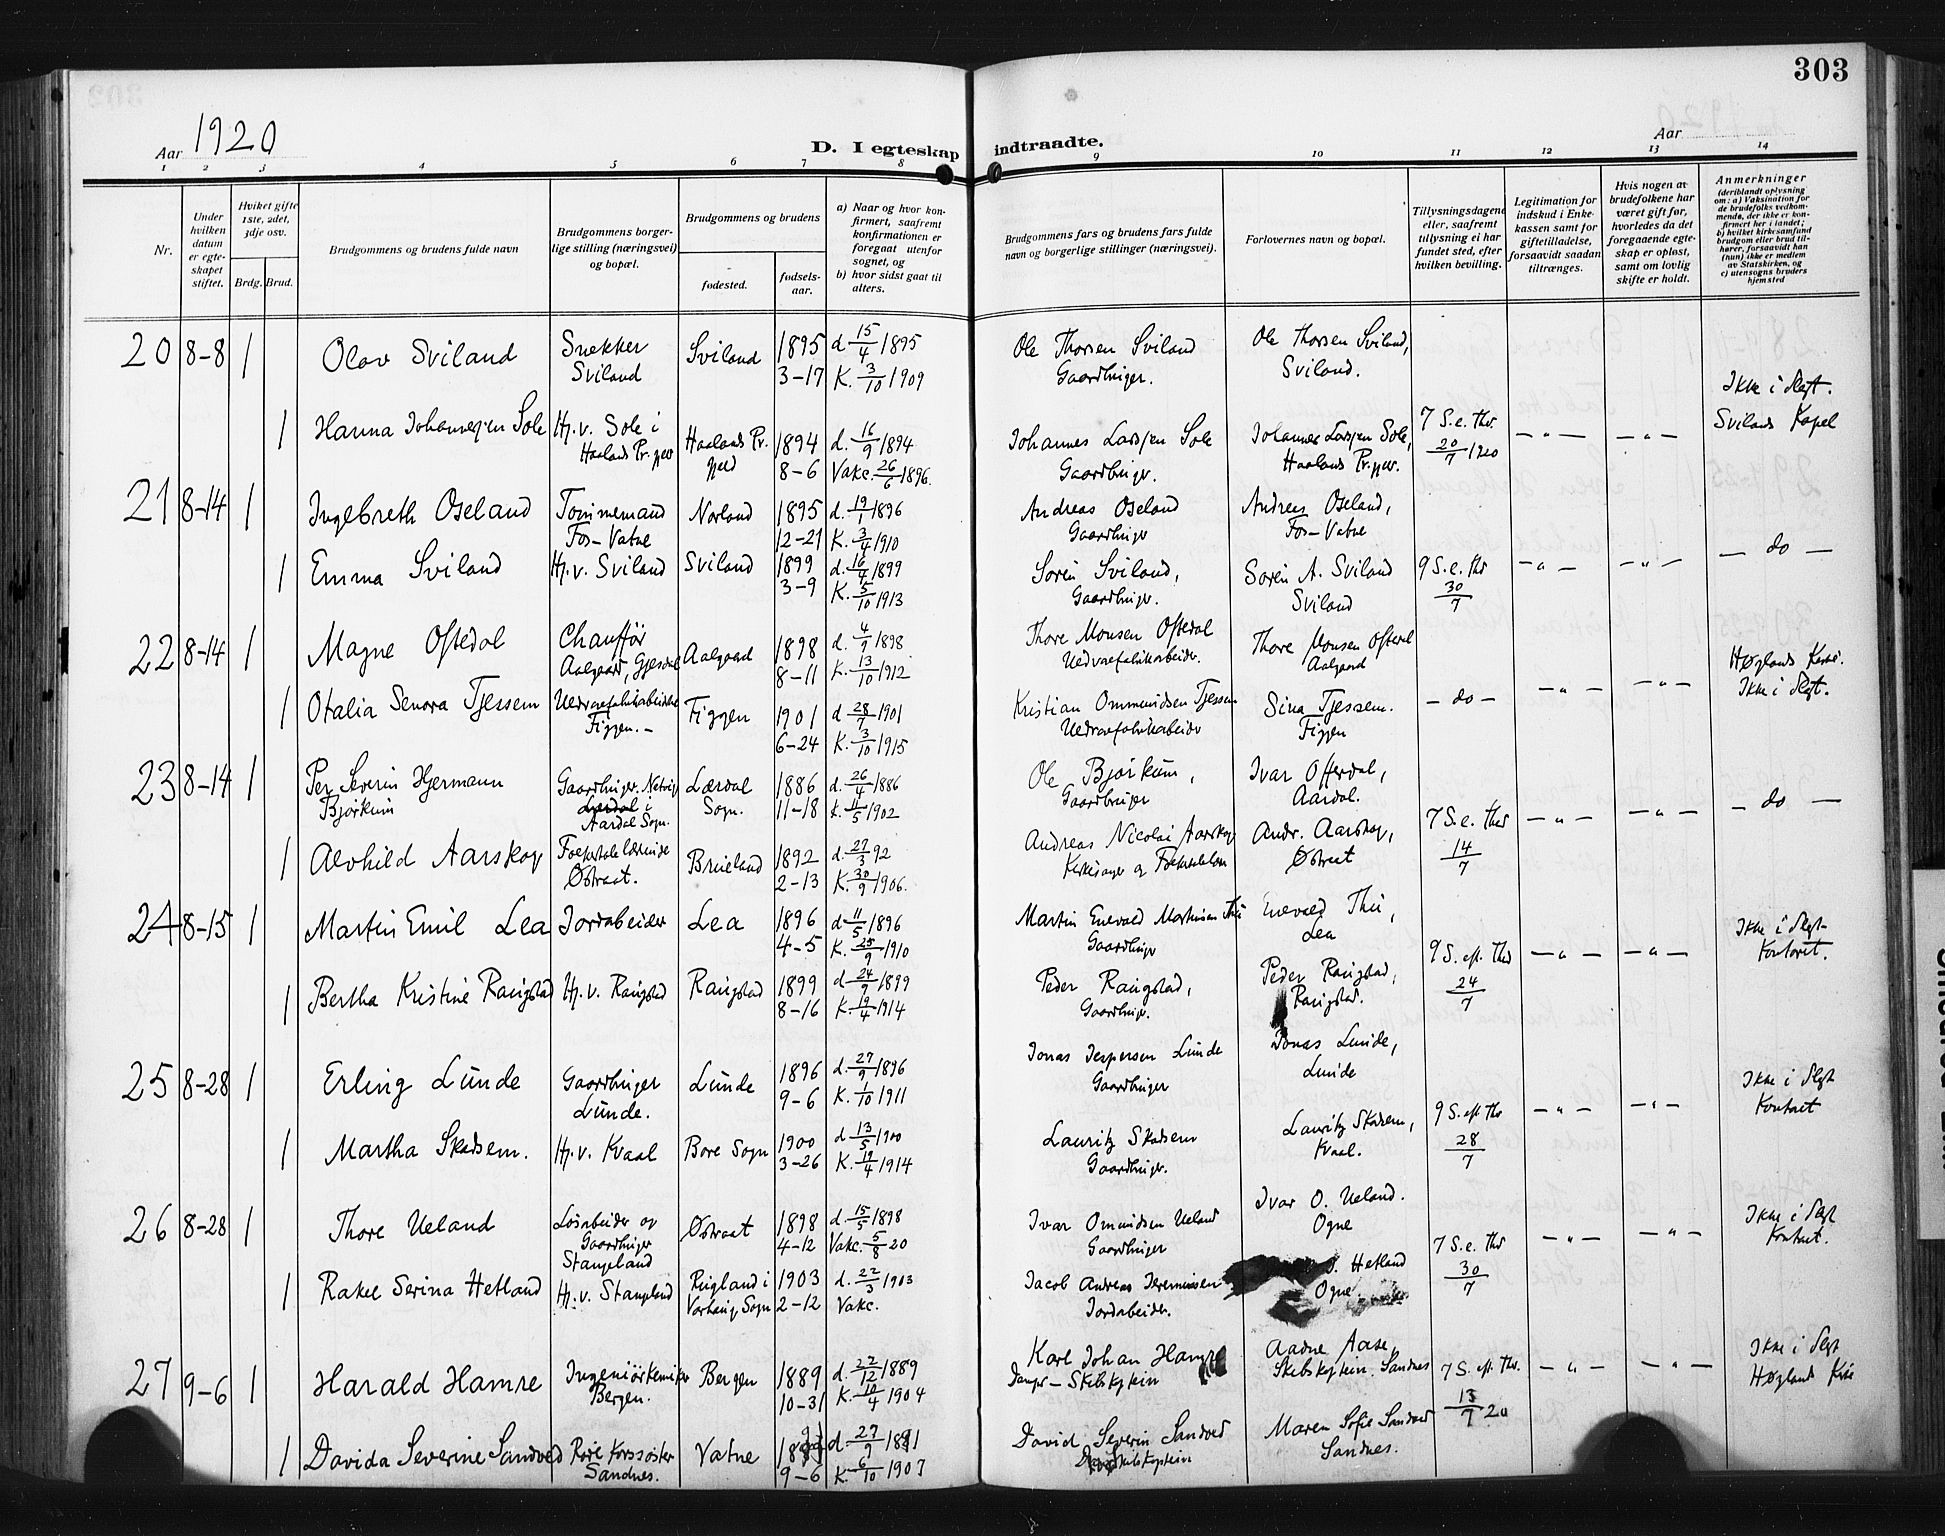 303
Aar 1920
D. I egteskap indtraadte.
Aar
1 2 3 4 5 6 7 8 9 10 11 12 13 14
Nr.
Under hvilken datum er egteskapet stiftet.
Hvilket gifte 1ste, 2det, 3dje osv.
Brdg. Brud.
Brudgommens og brudens fulde navn
Brudgommens borgerlige stilling (næringsvei) og bopæl.
Brudgommens og brudens
fødested.
fødselsaar.
a) Naar og hvor konfirmert, saafremt konfirmationen er foregaat utenfor sognet, og
b) hvor sidst gaat til alters.
Brudgommens fars og brudens fars fulde navn og borgerlige stillinger (næringsvei).
Forlovernes navn og bopæl.
Tillysningsdagene eller, saafremt tillysning ei har fundet sted, efter hvilken bevilling.
Legitimation for indskud i Enkekassen samt for giftetilladelse, forsaavidt saadan tiltrænges.
Hvis nogen av brudefolkene har været gift før, hvorledes da det foregaaende egteskap er opløst, samt om lovlig skifte er holdt.
Anmerkninger
(deriblandt oplysning om: a) Vaksination for de brudefolks vedkommende, der ikke er konfirmert her i landet; b) hvilket kirkesamfund brudgom eller brud tilhører, forsaavidt han (hun) ikke er medlem av Statskirken, og c) utensogns bruders hjemsted
20 8-8 1 Olav Sviland Snekker Sviland Sviland 1895 3-17 d. 15/4 1895 K. 3/10 1909 Ole Thorsen Sviland Gaardbruger. Ole Thorsen Sviland, Sviland.
1 Hanna Johannesen Sole Hj. v. Sole i Haalands Pr.gjeld Haalands Pr. gjeld 1894 8-6 d. 16/9 1894 Vakc. 26/6 1896. Johannes Larsen Sole Gaardbruger. Johannes Larsen Sole, Haalands Pr.gjeld. 7 S. e. Thr. 20/7 1920 — " — — " — Ikke i Slegt. Svilands Kapel
21 8-14 1 Ingebreth Oseland Tømmemand Fos-Vatne Norland 1895 12-21 d. 19/1 1896 K. 3/4 1910 Andreas Oseland Gaardbruger Andreas Oseland, Fos-Vatne
1 Emma Sviland Hj. v. Sviland Sviland 1899 3-9 d. 16/4 1899 K. 5/10 1913 Søren Sviland, Gaardbruger. Søren A. Sviland Sviland 9 S. e. Thr 30/7 — " — — " — — do —
22 8-14 1 Magne Oftedal Chauffør Aalgaard, Gjesdal Aalgaard 1898 8-11 d. 4/9 1898 K. 13/10 1912 Thore Monsen Oftedal Uldvarefabrikarbeider. Thore Monsen Oftedal Aalgaard
1 Otalia Senora Tjessem Figgen. — Figgen 1901 6-24 d. 28/7 1901 K. 3/10 1915 Kristian Ommundsen Tjessem Uldvarefabrikarbeider Sina Tjessem. Figgen — do — — " — — " — Høglands Kirke. Ikke i Slegt.
23 8-14 1 Per Severin Hjermann Bjørkum Gaardbruger. Lærdal i Aardal Sogn. Lærdal Sogn. 1886 11-18 d. 26/4 1886 K. 11/5 1902 Ole Bjørkum, Gaardbruger Ivar Offerdal, Aardal.
1 Alvhild Aarskog Østraat. Brueland 1892 2-13 d. 27/3 92 K. 30/9 1906. Andreas Nicolai Aarskog Kirkesanger og Andr. Aarskog, Østraat 7 S. e. Thr 14/7 — " — — " — — do —
24 8-15 1 Martin Emil Lea Jordabeider Lea 1896 4-5 d. 11/5 1896 K. 25/9 1910 Martin Enevald Martinsen Thu Gaardbruger Enevald Thu, Lea
1 Bertha Kristine Raugstad Hj. v. Raugstad Raugstad 1899 8-16 d. 24/9 1899 K. 19/4 1914 Peder Raugstad, Gaardbruger. Peder Raugstad, Raugstad. 9 S. ef. Thr 24/7 — " — — " — Ikke i Slegt- Kontoret.
25 8-28 1 Erling Lunde Gaardbruger Lunde. Lunde 1896 9-6 d. 27/9 1896 K. 1/10 1911 Jonas Jespersen Lunde Gaardbruger Jonas Lunde, Lunde
1 Martha Skadsem. Hj. v. Kvaal Bore Sogn 1900 3-26 d. 13/5 1900 K. 19/4 1914 Lauritz Skadsem Gaardbruger. Lauritz Skadsem, Kvaal. 9 S. ef. Thr 28/7 — " — — " — Ikke i Slegt Kontoret
26 8-28 1 Thore Ueland Løsarbeider og Gaardbruger Stangeland Østraat 1898 4-12 d. 15/5 1898 Vakc. 5/8 20 Ivar Omundsen Ueland Gaardbruger Ivar O. Ueland. Ogne
1 Rakel Serina Hetland Hj. v. Stangeland Rugland i Varhaug Sogn 1903 2-12 d. 22/3 1903 Vakc. Jacob Andreas Jeremiassen Jordabeider. J. Hetland Ogne. 7 S. e. Thr 30/7 — " — — " — Ikke i Slegt Kontoret.
27 9-6 1 Harald Hamre Ingeniørkemiker Bergen. Bergen 1889 10-31 d. 22/12 1889 K. 10/4 1904 Karl Johan Hamre Damps-Skibskaptein Aadne Aase, Skibskaptein. Sandnes 7 S. ef. Thr. — " — — " — Ikke i Slegt Høgland Kirke
1 Davida Severine Sandved Røde Korssøster Sandnes. Vatne 9-6 d. 27/9 K. 6/10 1907 David Severin Sandved Maren Sofie Sandved Sandnes. 13/7 20